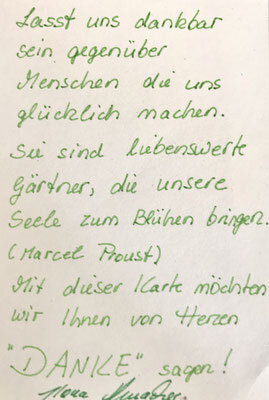 Lasst uns dankbar
sein gegenüber
Menschen die uns
glücklich machen.
Sie sind liebenswerte
Gärtner, die unsere
Seele zum Blühen bringen.
(Marcel Proust)
Mit dieser Karte möchten
wir Ihnen von Herzen
"DANKE" sagen!